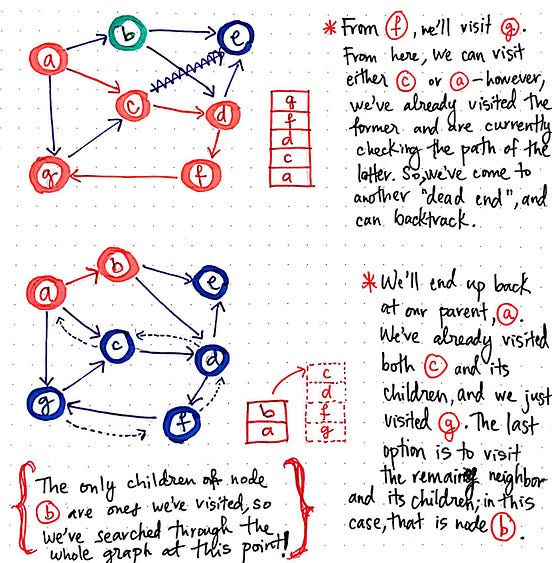 a
b
e
c
d
g
f
g
f
d
c
a
* From f, we'll visit g.
From here, we can visit
either c or a - however,
we've already visited the
former and are currently
checking the path of the
latter. So, we've come to
another "dead end", and
can backtrack.
a
b
e
c
d
g
f
b
a
c
d
f
g
* We'll end up back
at our parent, a.
We've already visited
both c and its
children, and we just
visited g. The last
option is to visit
the remaing neighbor
and its children; in this
case, that is node b.
The only children of node
b are ones we've visited, so
we've searched through the
whole graph at this point!